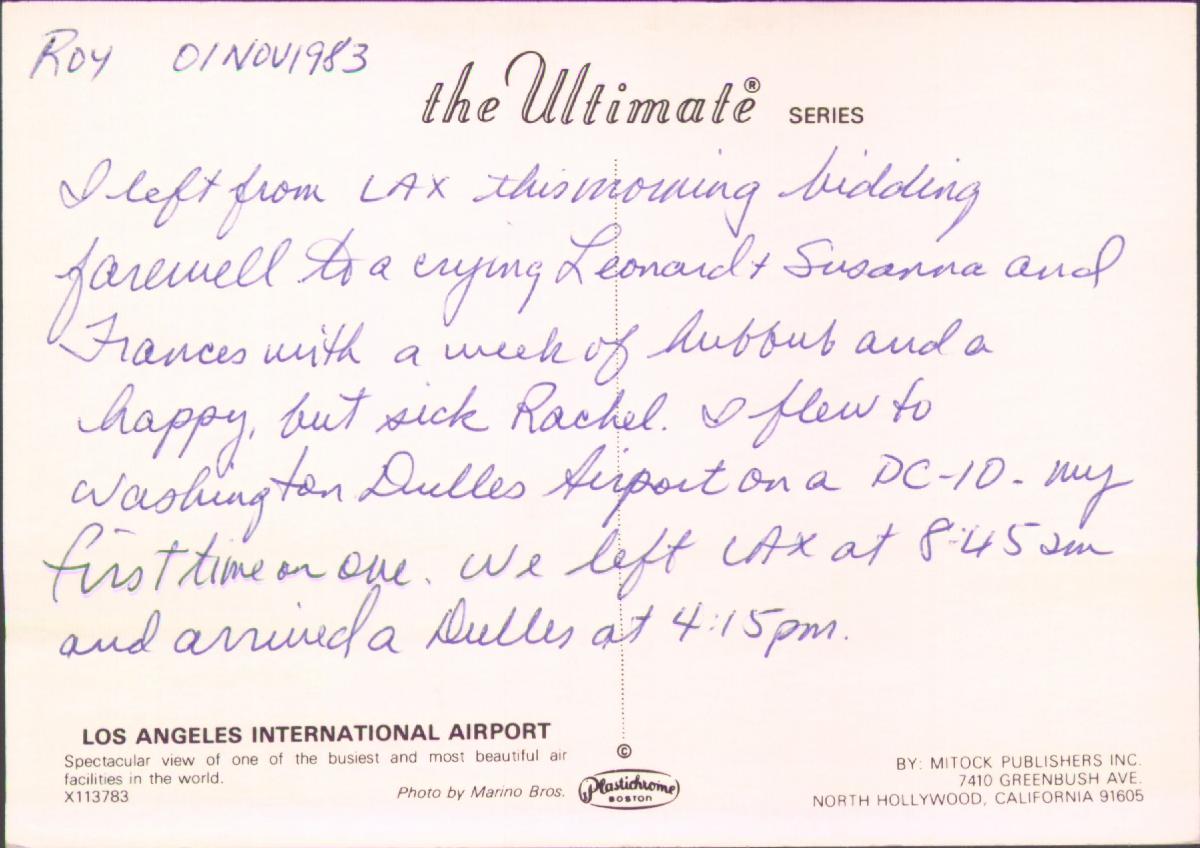 Roy 01NOV1983
the Ultimate® SERIES
I left from LAX this morning bidding
farewell to a crying Leonard + Susanna and
Frances with a week of hubbub and a
happy, but sick Rachel. I flew to
Washington Dulles Airport on a DC-10 - my
first time on one. We left LAX at 8:45am
and arrived a Dulles at 4:15pm.
LOS ANGELES INTERNATIONAL AIRPORT
Spectacular view of one of the busiest and most beautiful air
facilities in the world.
X113783
Photo by Marino Bros.
©
Plastichrome
BOSTON
BY: MITOCK PUBLISHERS INC.
7410 GREENBUSH AVE.
NORTH HOLLYWOOD, CALIFORNIA 91605